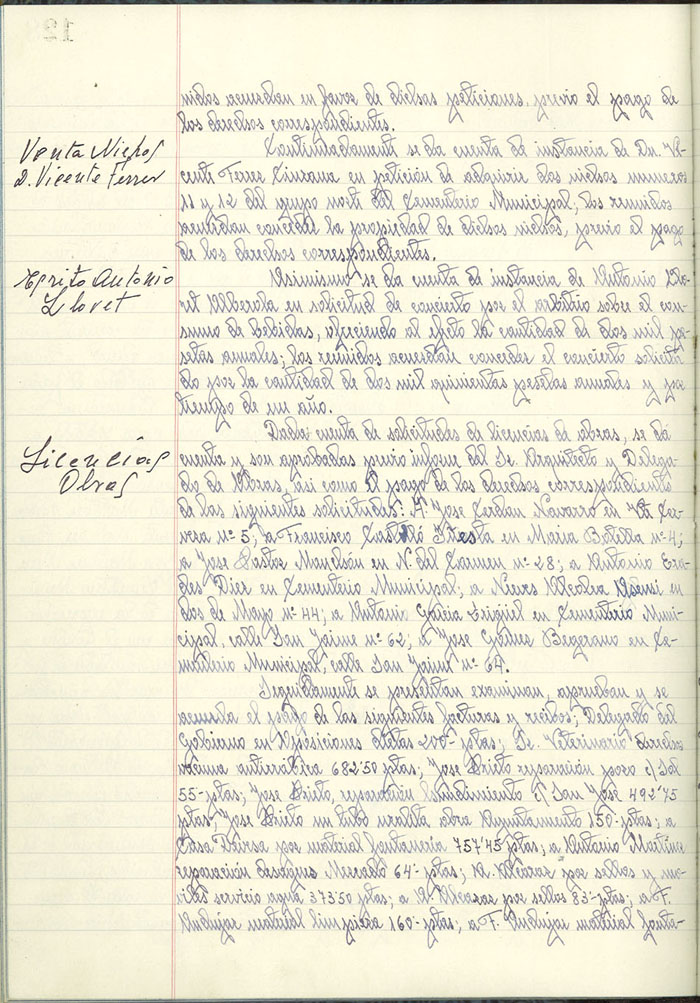 128
nidos acuerdan en favor de dichas peticiones, previo el pago de
los derechos correspondientes.
Venta Nichos
D. Vicente Ferrer
Continuadamente se da cuenta de instancia de Dn. Vi-
cente Ferrer Zinzama en petición de adquirir dos nichos números
11 y 12 del grupo norte del Cementerio Municipal; los reunidos
acuerdan conceder la propiedad de dichos nichos, previo el pago
de los derechos correspondientes.
Escrito Antonio
Llovet
Asimismo se da cuenta de instancia de Antonio Llo-
ret Alberola en solicitud de concierto por el arbitrio sobre el con-
sumo de bebidas, ofreciendo al efecto la cantidad de dos mil pe-
setas anuales; los reunidos acuerdan conceder el concierto solicita
do por la cantidad de dos mil quinientas pesetas anuales y por
tiempo de un año.
Licencias
Obras
Dada cuenta de solicitudes de licencias de obras, se da
cuenta y son aprobadas previo informe del Sr. Arquitecto y Delega-
do de Obras, asi como el pago de los derechos correspondientes
de las siguientes solicitudes: A Jose Cerdan Navarro en
nº 5; a Francisco Castelló en Maria Batilla nº 4;
a Jose Pastor Manchón en N. del Carmen nº 28; a Antonio
Diez en Cementerio Municipal; a Nieves Alcolea Asensi en
dos de Mayo nº 44; a Antonio Garcia en Cementerio Muni-
cipal, calle San Jaime nº 62; a Jose Gomez Bejerano en Ce-
menterio Municipal, calle San Jaime nº 64.
Seguidamente se presentan examinan, aprueban y se
acuerda el pago de las siguientes facturas y recibos; Delegado del
Gobierno en Oposiciones dietas 200- ptas; Sr. Veterinario
vacuna antirrabica 682'50 ptas; Jose Prieto reparación pozo c/ Sol
55- ptas; Jose Prieto, reparación hundimiento c/ San José 492'75
ptas; Jose Prieto un tubo uralita obra Ayuntamiento 150- ptas; a
Casa por material fontaneria 757'45 ptas; a Antonio Martinez
reparación desagües Mercado 64'- ptas; A. Alcaraz por sellos y mo-
viles servicio agua 373'50 ptas; a A. Alcaraz por sellos 83'- ptas; a F.
Andujar material limpieza 160'- ptas; a F. Andujar material fonta-